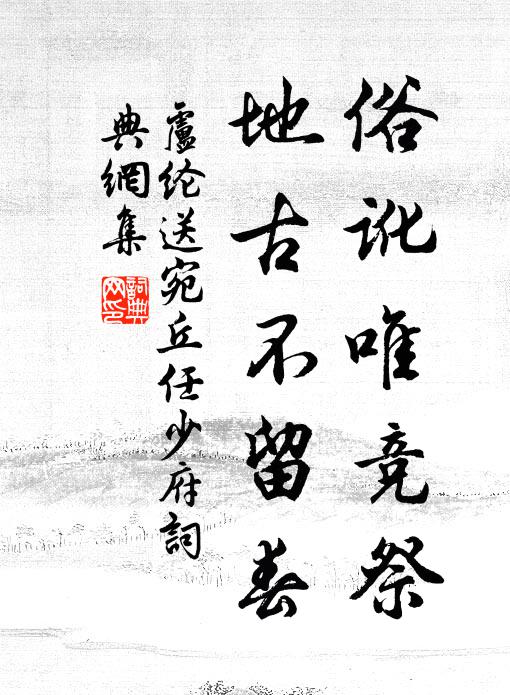 俗訛唯竞祭
地古不留春
盧纶送宛丘任少府詞
典網集
詞典
网印